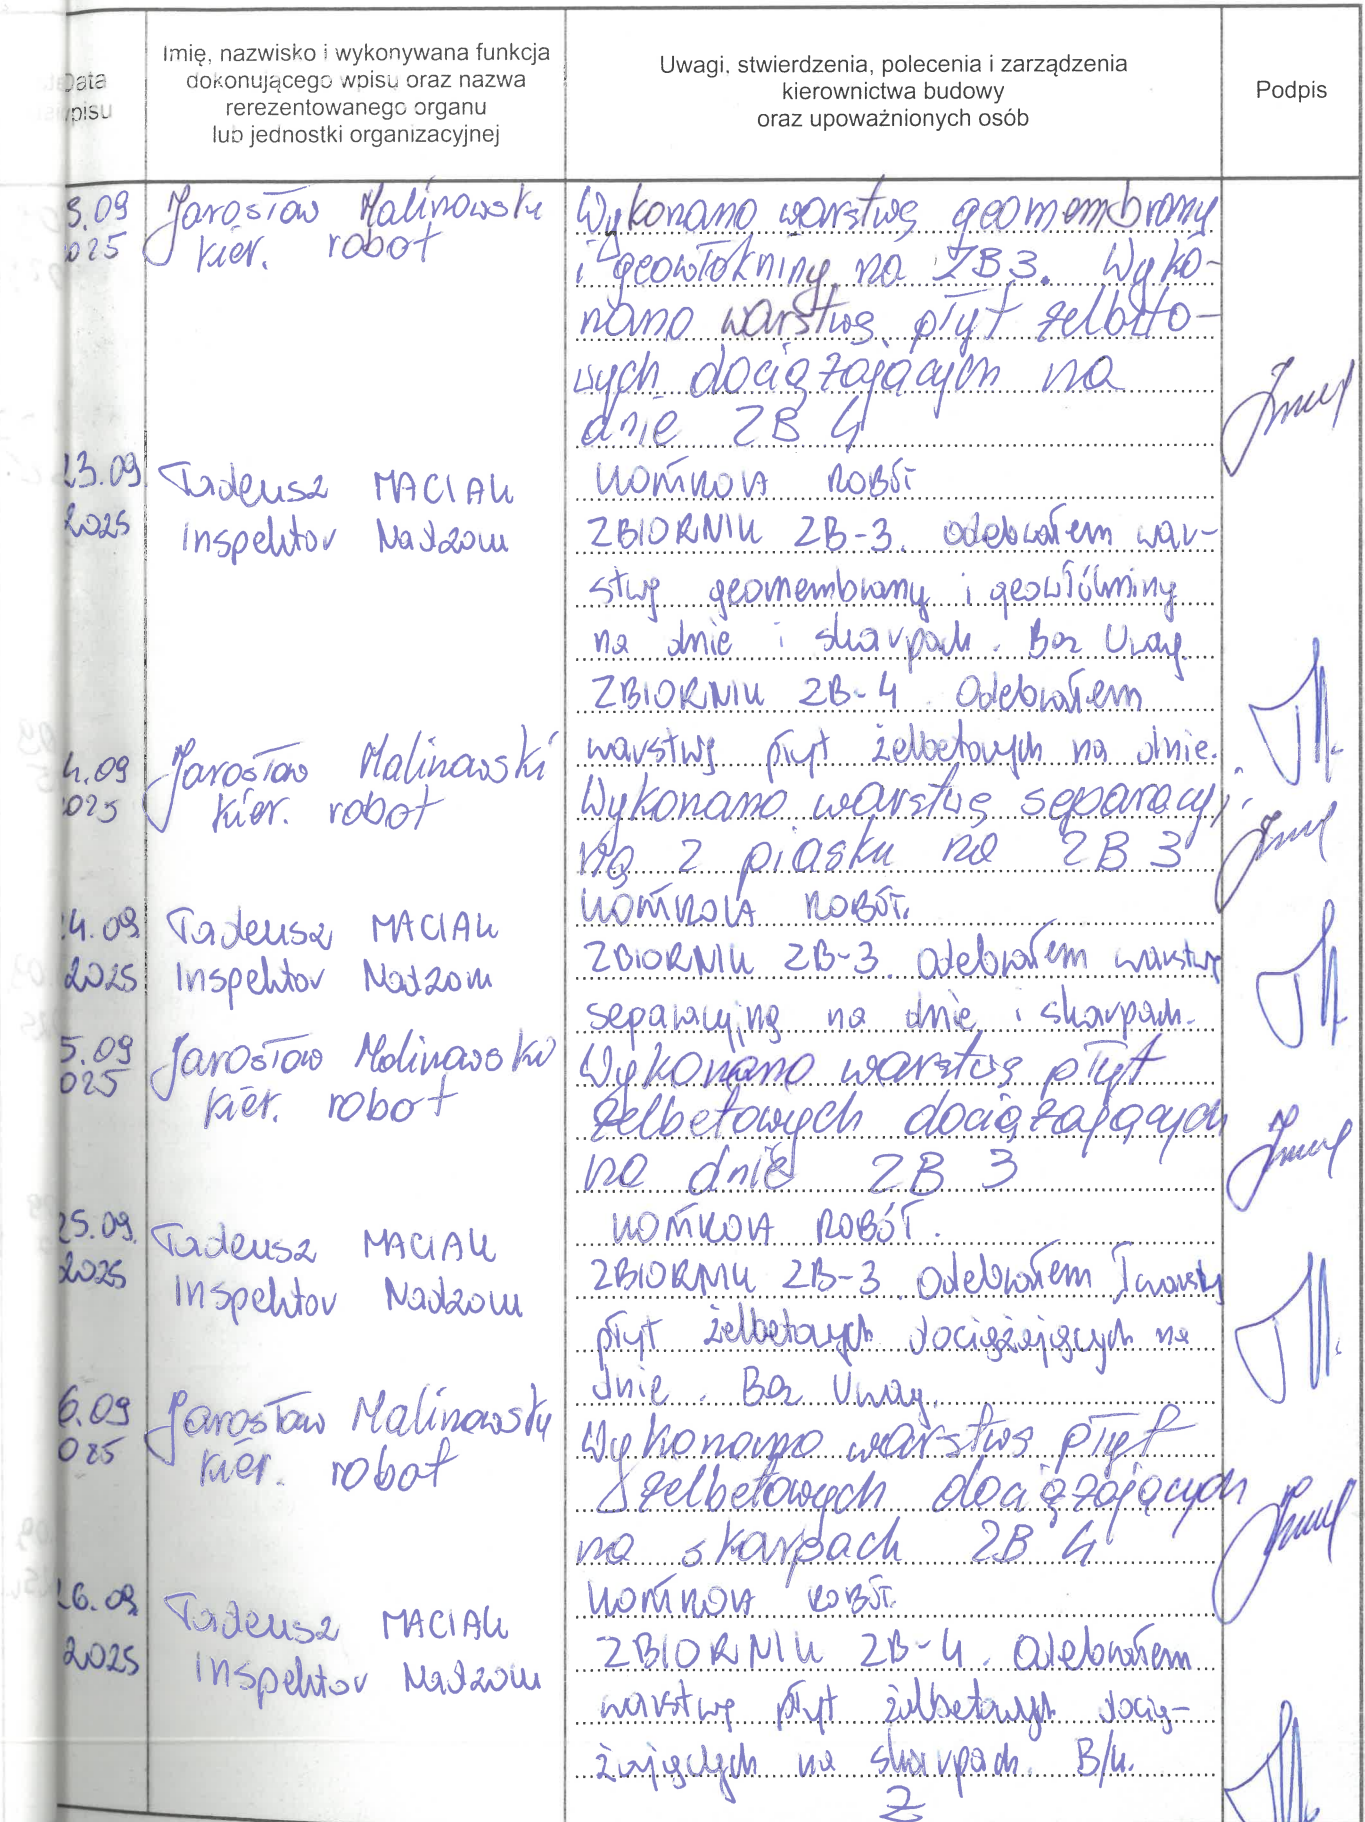 Data
wpisu
Imię, nazwisko i wykonywana funkcja
dokonującego wpisu oraz nazwa
rerezentowanego organu
lub jednostki organizacyjnej
Uwagi, stwierdzenia, polecenia i zarządzenia
kierownictwa budowy
oraz upoważnionych osób
Podpis
3.09
025
Jarosław Malinowski
kier. robot
Wykonano warstwę geomembrany
i geowłókniny na ZB3. Wyko-
nano warstwę płyt żelbeto-
wych dociążających na
dnie ZB 4
23.09
2025
Tadeusz MACIAK
Inspektor Nadzoru
KONTROLA ROBÓT
ZBIORNIK ZB-3. Odebrałem war-
stwę geomembrany i geowłókniny
na dnie i skarpach. Bez Uwag.
ZBIORNIK ZB-4. Odebrałem
warstwę płyt żelbetowych na dnie.
4.09
025
Jarosław Malinowski
kier. robot
Wykonano warstwę separacyj
ną z piasku na ZB 3
24.09
2025
Tadeusz MACIAK
Inspektor Nadzoru
KONTROLA ROBÓT.
ZBIORNIK ZB-3. Odebrałem warstwę
separacyjną na dnie i skarpach.
5.09
025
Jarosław Malinowski
kier. robot
Wykonano warstwę płyt
żelbetowych dociążających
na dnie ZB 3
25.09.
2025
Tadeusz MACIAK
Inspektor Nadzoru
KONTROLA ROBÓT.
ZBIORNIK ZB-3. Odebrałem warstwę
płyt żelbetowych dociążających na
dnie. Bez Uwag.
6.09
025
Jarosław Malinowski
kier. robot
Wykonano warstwę płyt
żelbetowych dociążających
na skarpach ZB 4
26.09.
2025
Tadeusz MACIAK
Inspektor Nadzoru
KONTROLA ROBÓT.
ZBIORNIK ZB-4. Odebrałem
warstwę płyt żelbetowych docią-
żających na skarpach. B/u.